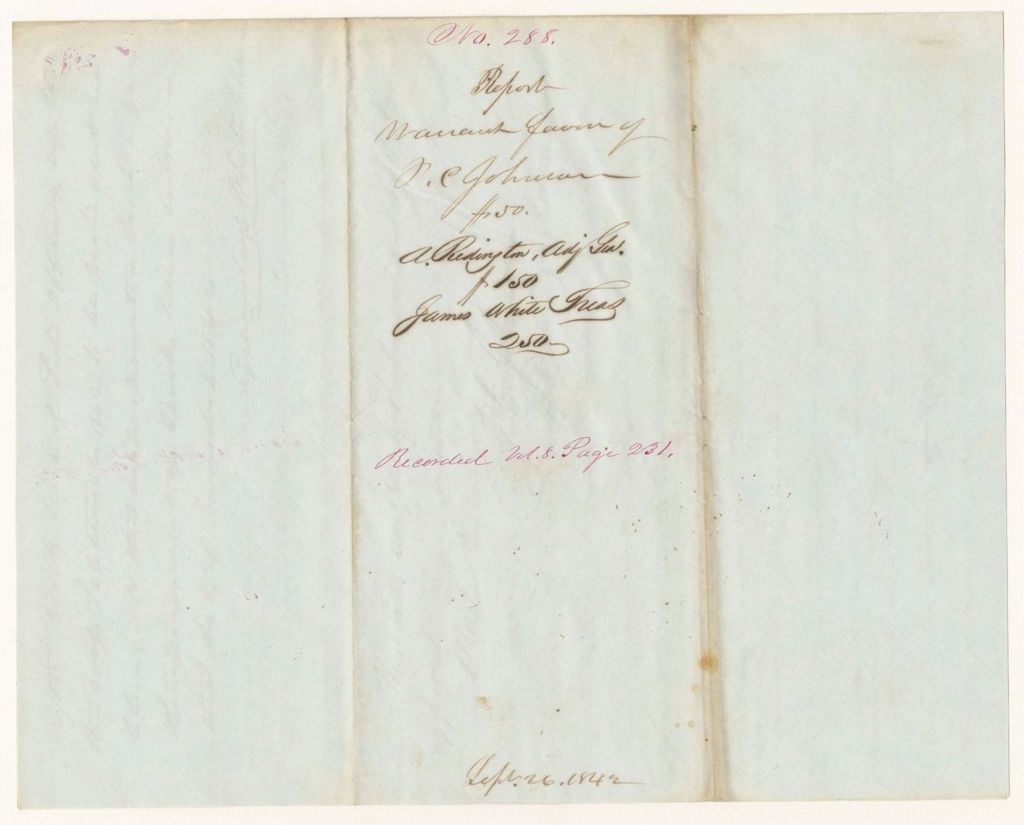 No. 288.
Report
Warrant favor of
P. C. Johnson
$50.
A. Redington, Adj Gen.
$150
James White Treas
250
Recorded Vol. 8. Page 231.
Sept. 26. 1842